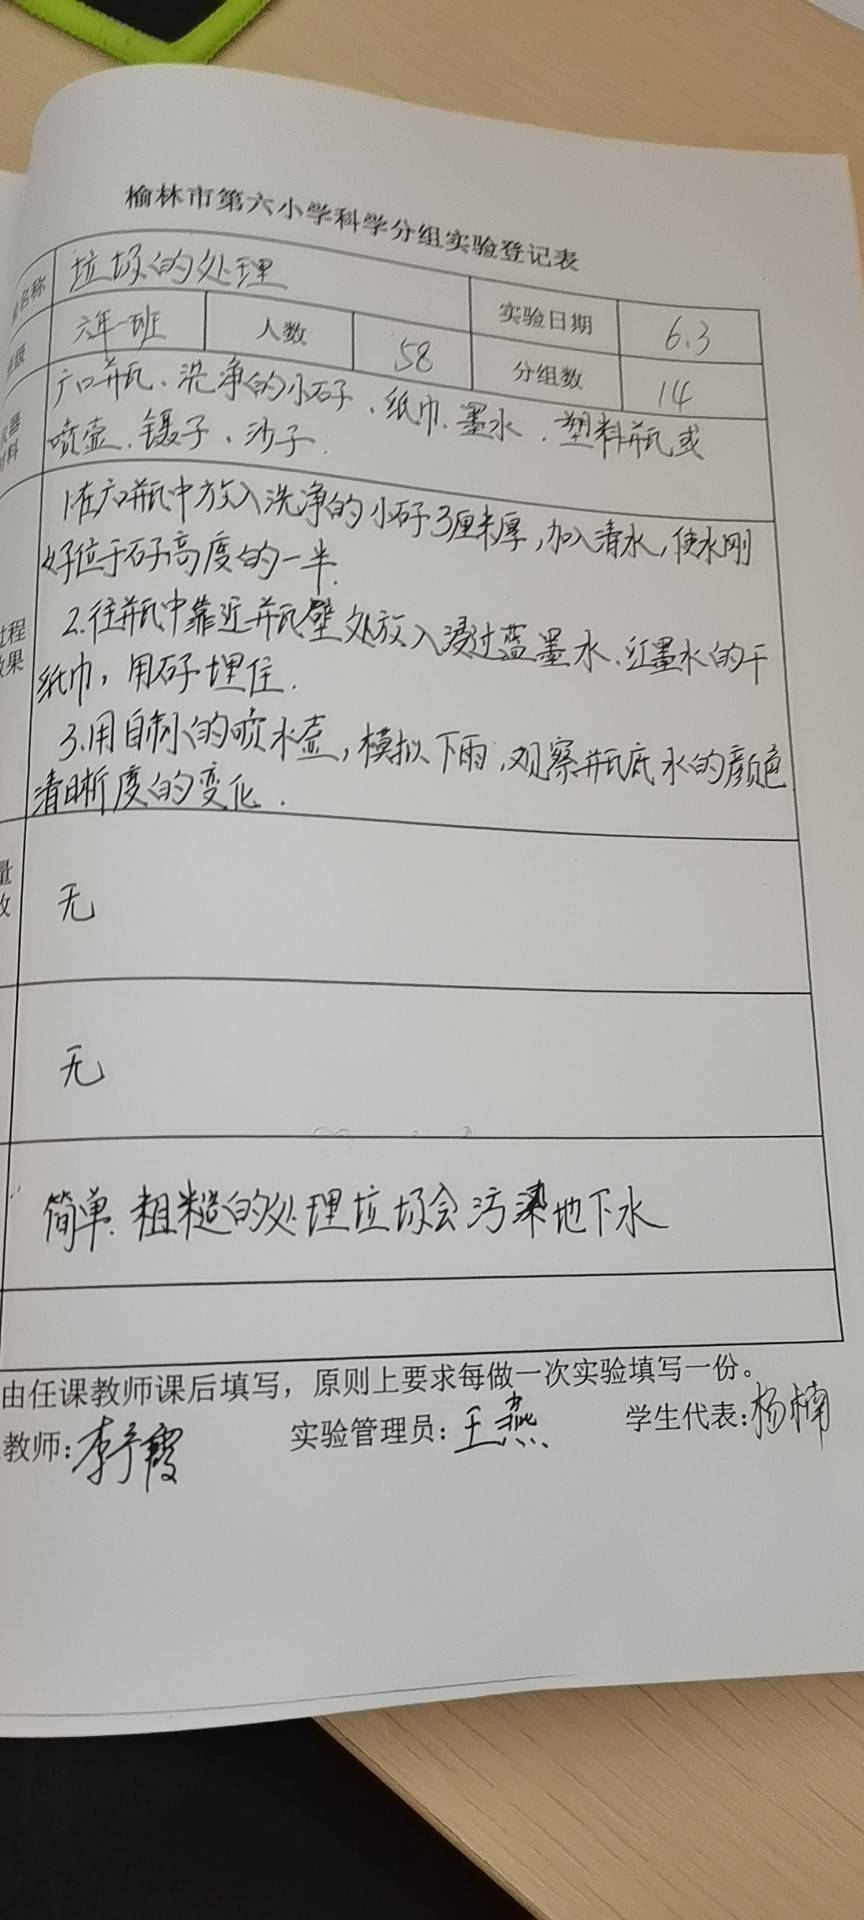 榆林市第六小学科学分组实验登记表
名称 垃圾的处理 实验日期 6.3
级 六年一班 人数 58 分组数 14
广口瓶、洗净的小石子、纸巾、墨水、塑料瓶或
喷壶、镊子、沙子.
1.在广口瓶中放入洗净的小石子3厘米厚,加入清水,使水刚
好位于石子高度的一半.
2.往瓶中靠近瓶壁处放入浸过蓝墨水、红墨水的干
过程
果
纸巾,用石子埋住.
3.用自制的喷水壶,模拟下雨,观察瓶底水的颜色
清晰度的变化.
量
无
无
简单、粗糙的处理垃圾会污染地下水
由任课教师课后填写，原则上要求每做一次实验填写一份。
教师: 实验管理员: 王燕 学生代表: 杨楠